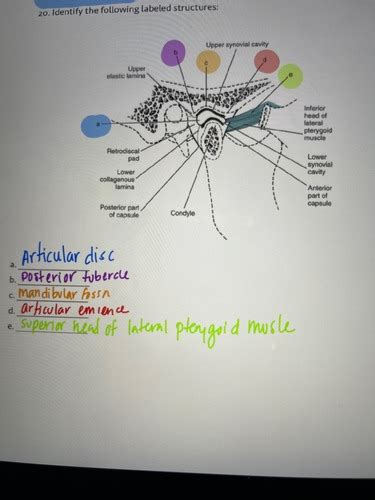 20. Identify the following labeled structures:
Upper synovial cavity
b
c
d
e
Upper
elastic lamina
a
Inferior
head of
lateral
pterygoid
muscle
Retrodiscal
pad
Lower
collagenous
lamina
Lower
synovial
cavity
Anterior
part of
capsule
Posterior part
of capsule
Condyle
a. Articular disc
b. posterior tubercle
c. mandibular fossa
d. articular emience
e. superior head of lateral pterygoid muscle